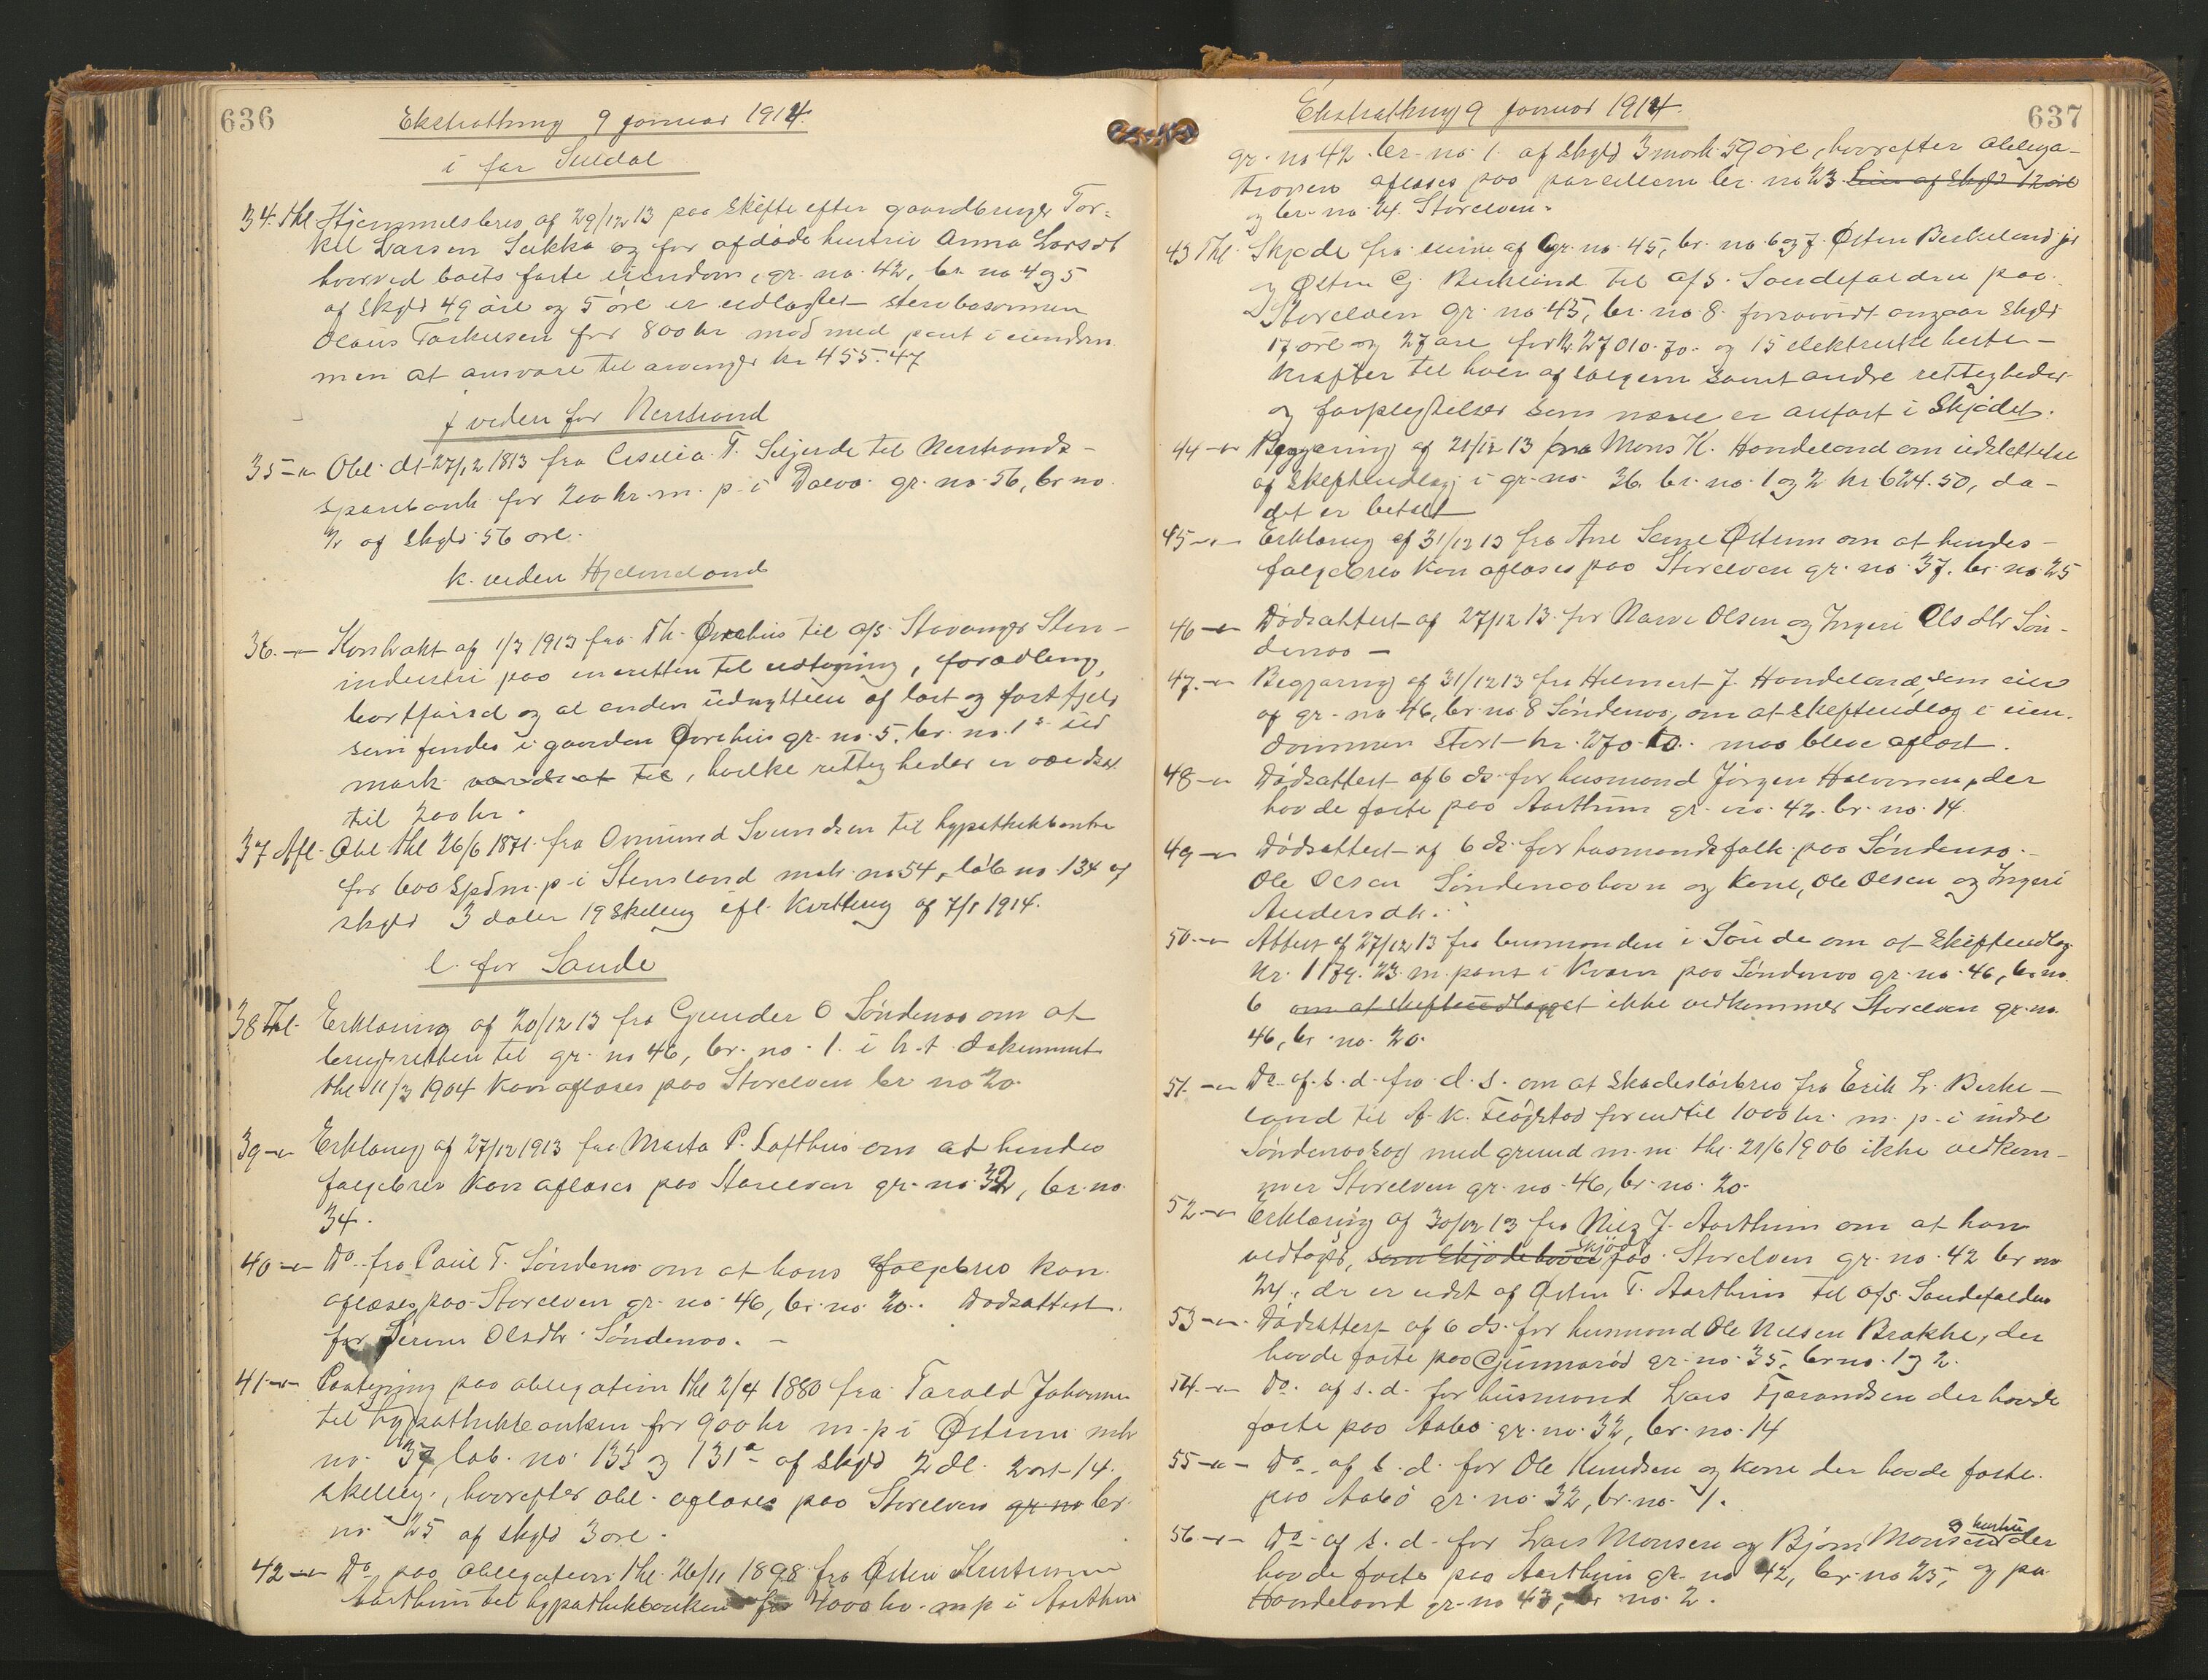 636
Ekstrathing 9 januar 1914.
i for Suldal
34. thl. Hjemmelsbrev af 29/12 13 paa skifte efter gaardbruger Tor-
kel Larsen Sukka og for afdøde hustru Anna Larsdt
hvorved boets faste eiendom, gr. no. 42, br. no 4 og 5
af skyld 49 øre og 5 øre er udlagt stervbosønnen
Olaus Torkelsen for 800 kr mod med pant i eiendom
men at ansvare til arvinger kr 455.47
j viden for Nerstrand
35 -"- Obl. dt. 27/12 1813 fra Cecilia T. til Nerstrands-
sparebank for 200 kr. m. p. i gr. no. 56, br no.
af skyld 56 øre.
k. viden Hjelmeland
36. -"- Kontrakt af 1/7 1913 fra Th. Øvrehus til a/s. Stavanger Sten-
industri paa eneretten til udtagning, forædling,
bortførsel og al anden udnyttelse af løst og fast fjeld
som findes i gaarden Øvrehus gr. no. 5. br. no. 1 s ud
mark værdsat til, hvilke rettigheder er værdsat
til 200 kr.
37 Afl. Obl. thl 26/6 1871 fra Svendsen til hypothekbanken
for 600 Spd m. p. i Stensland matr. no 54, løb no. 134 af
skyld 3 daler 19 skilling ifl. kvittering af 7/1 1914.
l. for Sande
38 Thl. Erklæring af 20/12 13 fra Gunder O Søndenaa om at
brugsretten til gr. no 46, br. no. 1. i h. t. dokument
thl 11/3 1904 kan aflæses paa Storelven br no 20.
39 -"- Erklæring af 27/12 1913 fra Marta P. Lofthus om at hendes
følgebrev kan aflæses paa Storelven gr. no. 32, br. no.
34.
40 -"- Do. fra Paul T. Søndenaa om at hans følgebrev kan
aflæses paa Storelven gr. no 46, br. no. 20. Dødsattest
for Serine Olsdtr. Søndenaa. -
41 -"- Paategning paa obligation thl 2/4 1880 fra Tarald Johannes
til hypothekbanken for 900 kr m. p i Østrem mtr
no. 37, løb. no. 133 og 131a af skyld 2 dl. 2 ort 14.
skilling, hvorefter obl. aflæses paa Storelven gr no br.
no. 25 af skyld 3 øre.
42 -"- Do. paa obligation thl. 26/11 1898 fra Østen
Aarthun til hypothekbanken for 4000 kr. m p i Aarthun
637
Ekstrathing 9 januar 1914.
gr. no 42 br. no. 1. af skyld 3 mark 59 øre, hvorefter obliga-
tionen aflæses paa parcellerne br. no 23. af skyld 12 øre
og br. no. 24. Storelven.
43 Thl. Skjøde fra eierne af gr. no. 45, br. no 6 og 7. Østen Berkeland jr
og Østen G. Berkland til a/s. Saudefaldene paa
Storelven gr. no. 45, br. no. 8. forsaavidt angaar skyld
17 øre og 27 øre for kr. 27010.70. og 15 elektriske heste-
kræfter til hver af sælgerne samt andre rettigheder
og forpligtelser som nærmere er anført i skjødet.
44 -"- Begjæring af 21/12 13 fra Mons K. Handeland om udslettelse
af skifteudlæg i gr. no. 36. br. no. 1 og 2 kr 624.50, da
det er betalt
45 -"- Erklæring af 31/12 13 fra Ane Serine Østrem om at hendes
følgebrev kan aflæses paa Storelven gr. no. 37. br. no. 25
46 -"- Dødsattest af 27/12 13 for Narve Olsen og Ingeri Olsdtr Søn-
denaa -
47. -"- Begjæring af 31/12 13 fra Helmert J. Handeland, som eier
af gr. no 46, br. no 8 Søndenaa, om at skifteudlæg i eien.
dommen stort kr. 270. maa blive aflæst.
48 -"- Dødsattest af 6 ds. for husmand Jørgen Halvorsen, der
havde fæste paa Aarthun gr. no. 42. br. no. 14.
49 -"- Dødsattest af 6 ds. for husmandsfolk paa Søndenaa.
Ole Olsen Søndenaahavn og kone, Ole Olsen og Ingeri
Andersdtr.
50. -"- Attest af 27/12 13 fra lensmanden i Saude om at skifteudlæg
kr. 1179.23. m. pant i Kvæven paa Søndenaa gr. no. 46, br no.
6 om at skifteudlægget ikke vedkommer Storelven gr. no
46, br. no. 20.
51. -"- Do. af s. d. fra d. s. om at skadesløsbrev fra Erik L. Berke-
land til A. K. Fløgstad for indtil 1000 kr. m. p. i indre
Søndenaaskog med grund m. m. thl. 21/6 1906 ikke vedkom-
mer Storelven gr. no. 46, br. no. 20.
52 -"- Erklæring af 30/12 13 fra J. Aarthun om at han
vedtager, som skjødehaver skjøde paa Storelven gr. no. 42 br no
24, der er udst af Østen T. Aarthun til a/s. Saudefaldene
53 -"- Dødsattest af 6 ds. for husmand Ole Nilsen Brække, der
havde fæste paa Gunnarød gr. no. 35, br no. 1 og 2.
54. -"- Do. af s. d. for husmand Lars Tjerandsen der havde
fæste paa Aabø gr. no. 32, br. no. 14
55 -"- Do. af s. d. for Ole Knudsen og kone der havde fæste
paa Aabø gr. no. 32, br. no. 1.
56 -"- Do. af s. d. for Lars Monsen og Bjørn Monsen og hustru der
havde fæste paa Aarthun gr. no 42, br. no 25, og pa
Handeland gr. no 43, br no. 2.